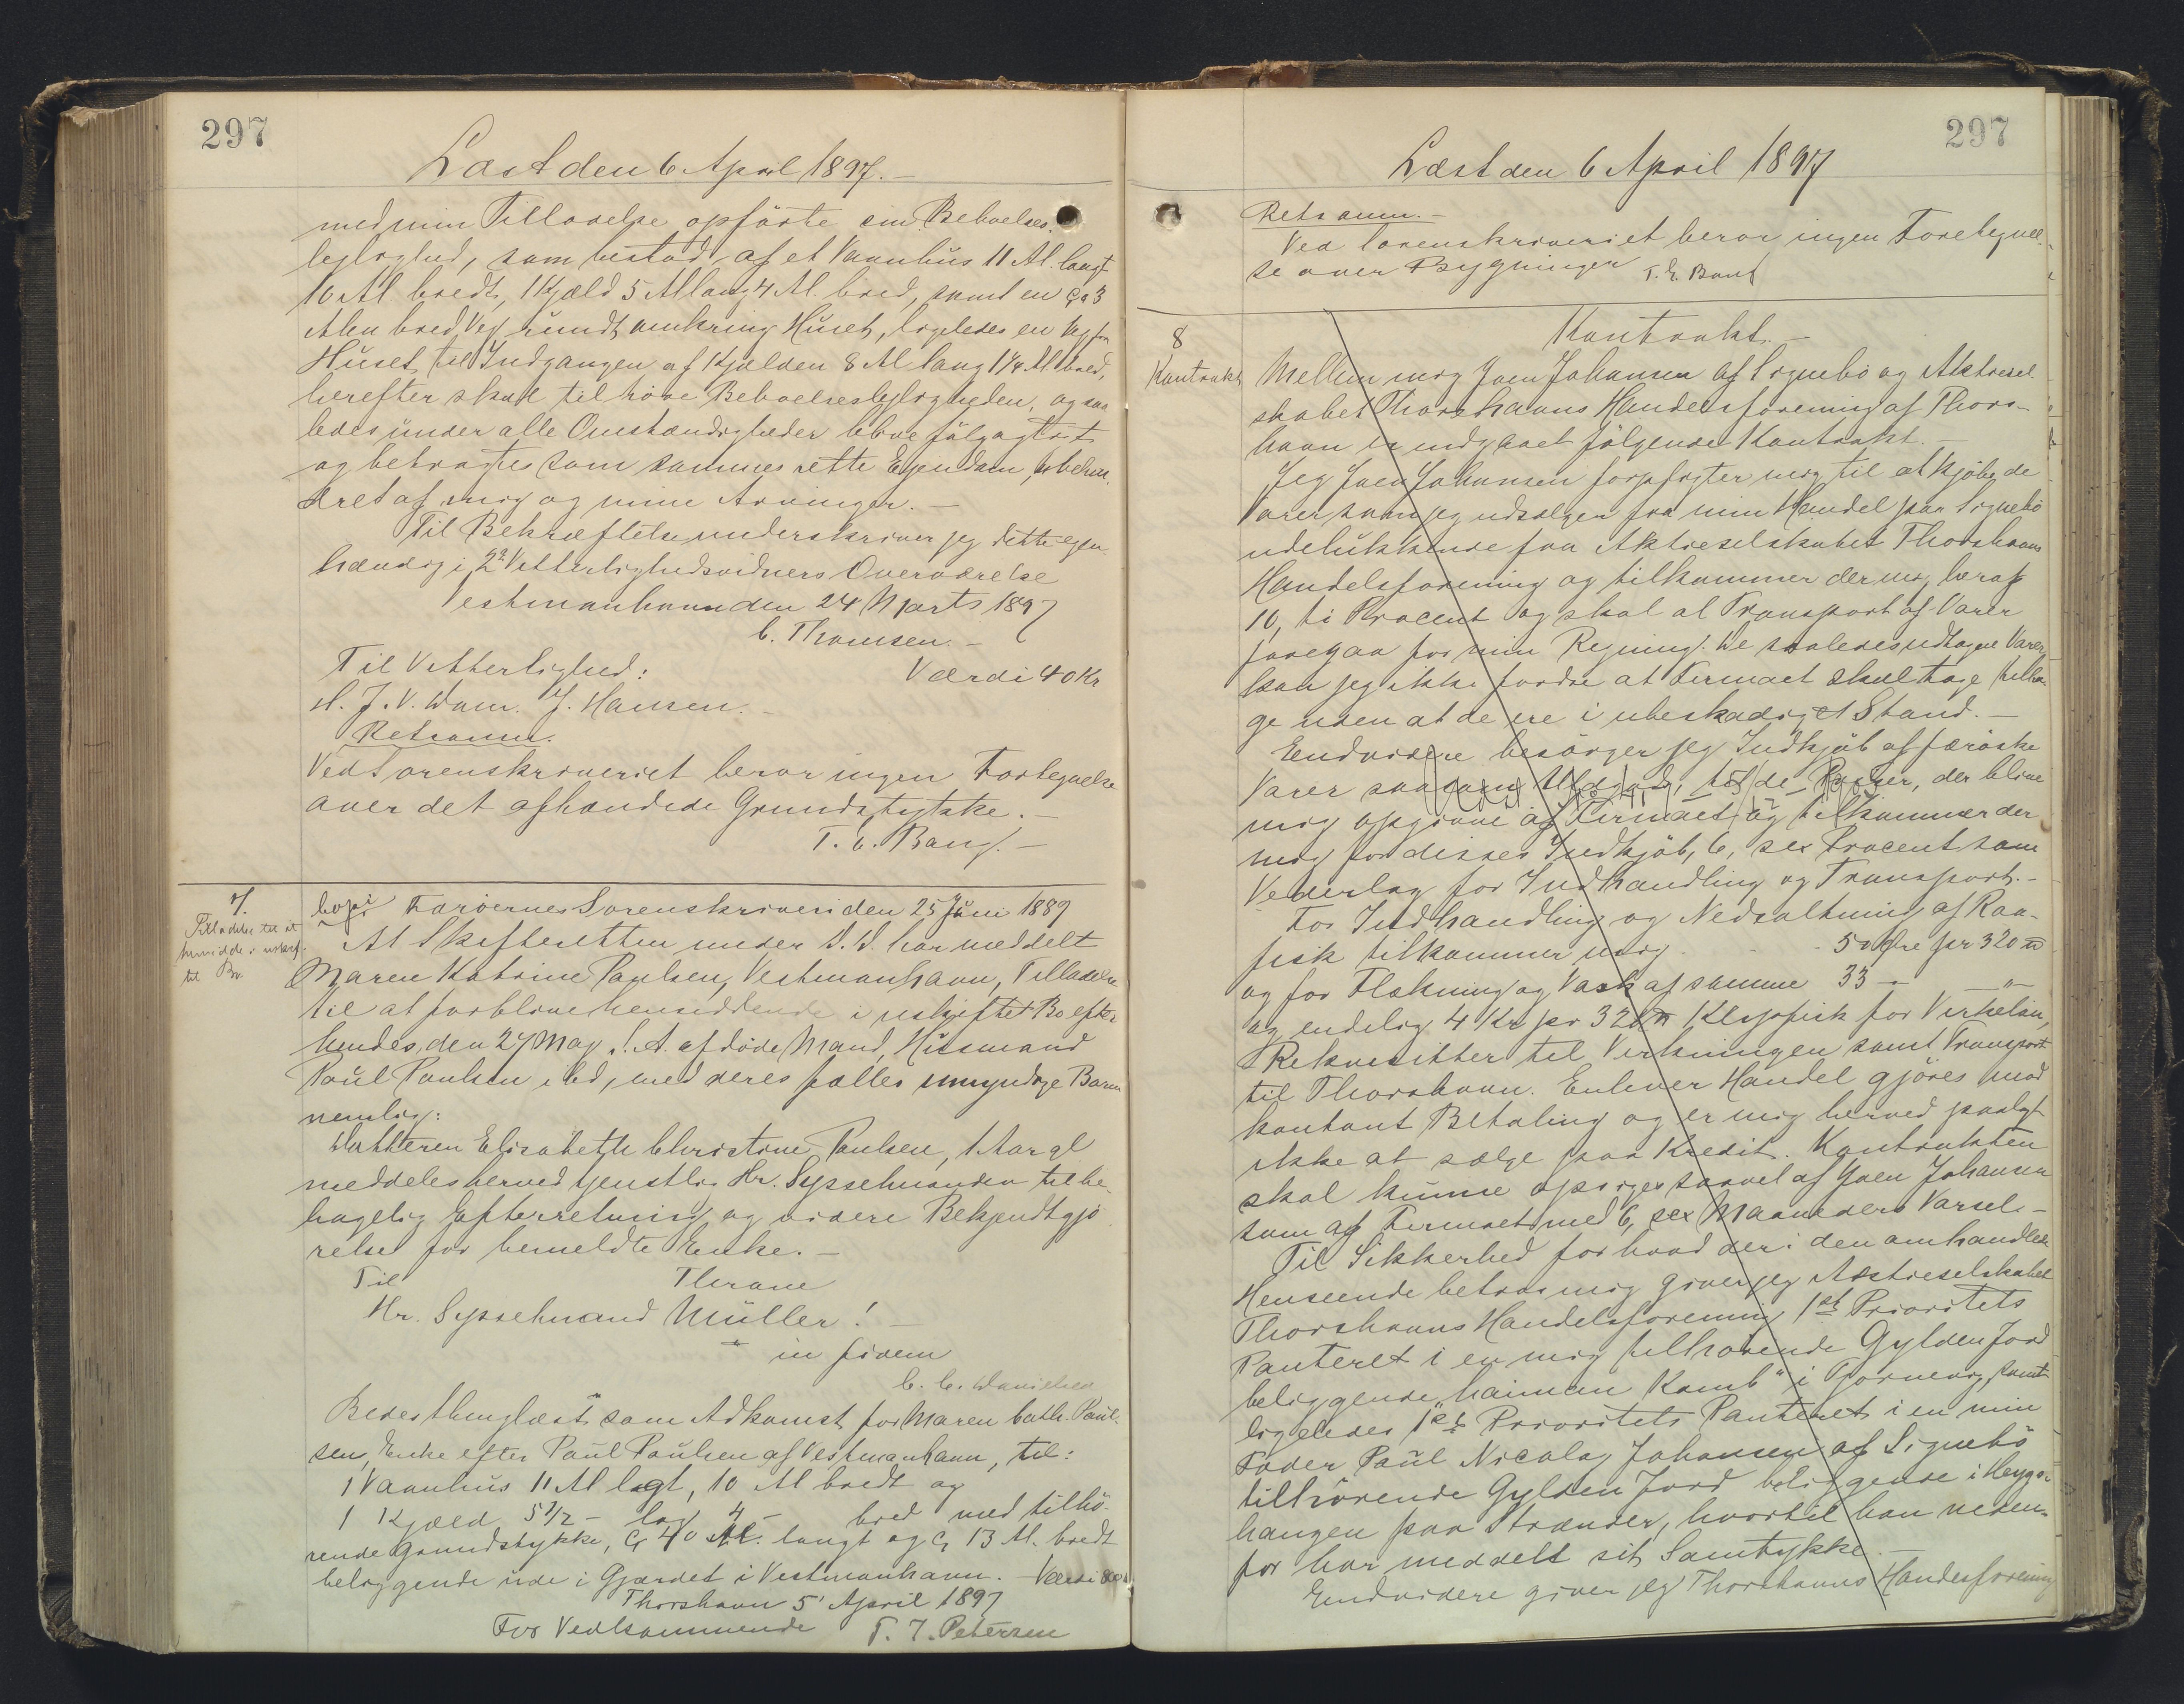 297
Læst den 6 April 1897.–
med min Tilladelse opførte sin Beboelses-
lejlighed, som bestod af et Vaanhus 11 Al. langt
10 Al. bredt, 1 Kjæld 5 Al lang 4 Al. bred, samt en Ca 3
Alen bred Vej rundt omkring Huset, ligeledes en Vej fra
Huset til Indgangen af Kjælden 8 Al lang 1¼ Al bred,
herefter skal tilhøre Beboelseslejligheden, og saa
ledes under alle Omstændigheder blive følgagtigt
og betragtes som sammes rette Ejendom, ubehin
dret af mig og mine Arvinger.–
Til Bekræftelse underskriver jeg dette egen
hændig i 2de Vitterlighedsvidners Overværelse
Vestmanhavn den 24 Marts 1897
C. Thomsen.–
Til Vitterlighed:
Værdi 40 Kr
H. J. V. Dam. J. Hansen.–
Retsanm.
Ved Sorenskriveriet beror ingen Fortegnelse
over det afhændede Grundstykke.–
T. C. Bang.–
7.
Tilladelse til at
hensidde i uskift.
til Bo.
Copi Færøernes Sorenskriveri den 25 Juni 1889
At Skifteretten under D.D. har meddelt
Maren Katrine Paulsen, Vestmanhavn, Tilladelse
til at forblive hensiddende i uskiftet Bo efter
hendes, den 27 Maj d. A. afdøde Mand, Husmand
Paul Paulsen ibd, med deres fælles umyndige Barn
nemlig:
Datteren Elisabeth Christine Paulsen, 1 Aar gl
meddeles herved tjenstlig Hr. Sysselmanden til be
hagelig Efterretning og videre Bekjendtgjø
relse for bemeldte Enke.–
Til
Therane
Hr. Sysselmand Müller!–
in fidem
C. C. Danielsen
Bedes thinglæst som Adkomst for Maren Cath. Paul-
sen, Enke efter Paul Paulsen af Vestmanhavn, til:
1 Vaanhus 11 Al lagt, 10 Al bredt og
1 Kjæld 5½ – lag 4 – bred med tilhø-
rende Grundstykke, Ca 40 Al. langt og Ca 13 Al. bredt
beliggende ude i Gjærdet i Vestmanhavn. – Værdi
Thorshavn 5' April 1897
For Vedkommende T. J. Petersen
297
Læst den 6 April 1897
Retsanm.–
Ved Sorenskriveriet beror ingen Fortegnel
se over Bygninger T. C. Bang
8
Kontrakt
Kontrakt.–
Mellem mig Joen Johansen af Signebø og Aktiesel
skabet Thorshavns Handelsforening af Thors-
havn er indgaaet følgende Kontrakt.–
Jeg Joen Johansen forpligter mig til at kjøbe de
Varer som jeg udsælger fra min Handel paa Signebø
udelukkende fra Aktieselskabet Thorshavns
Handelsforening og tilkommer der mig heraf
10, ti Procent og skal al Transport af Varer
foregaa for min Regning. De saaledes udtagne Varer
kan jeg ikke fordre at Firmaet skal tage tilba-
ge uden at de ere i ubeskadiget Stand.–
Endvidere besørger jeg Indkjøb af færøske
Varer saasom Uldgods, til de Priser, der blive
mig opgivne af Firmaet og tilkommer der
mig for disses Indkjøb, 6, sex Procent som
Vederlag for Indhandling og Transport.–
For Indhandling og Nedsaltning af Raa-
fisk tilkommer mig – – 50 Øre pr 320 ℔
og for Flækning og Vask af samme 33 – – „ –
og endelig 4 Kr pr 320 ℔ Klipfisk for Virkeløn,
Rekvisitter til Virkningen samt Transport
til Thorshavn. Enhver Handel gjøres mod
kontant Betaling og er mig herved paalagt
ikke at sælge paa Kredit. Kontrakten
skal kunne opsiges saavel af Joen Johansen
som af Firmaet med 6, sex Maaneders Varsel.–
Til Sikkerhed for hvad der i den omhandlede
Henseende betros mig giver jeg Aktieselskabet
Thorshavns Handelsforening 1st Prioritets
Panteret i en mig tilhørende Gylden Jord
beliggende „haiman Kamb" i Gjornevig, samt
ligeledes 1st Prioritets Panteret i en min
Fader Paul Nicolaj Johansen af Signebø
tilhørende Gylden Jord beliggende i Heyga-
haugen paa Strænder, hvortil han neden-
for har meddelt sit Samtykke.–
Endvidere giver jeg Thorshavns Handelsforening